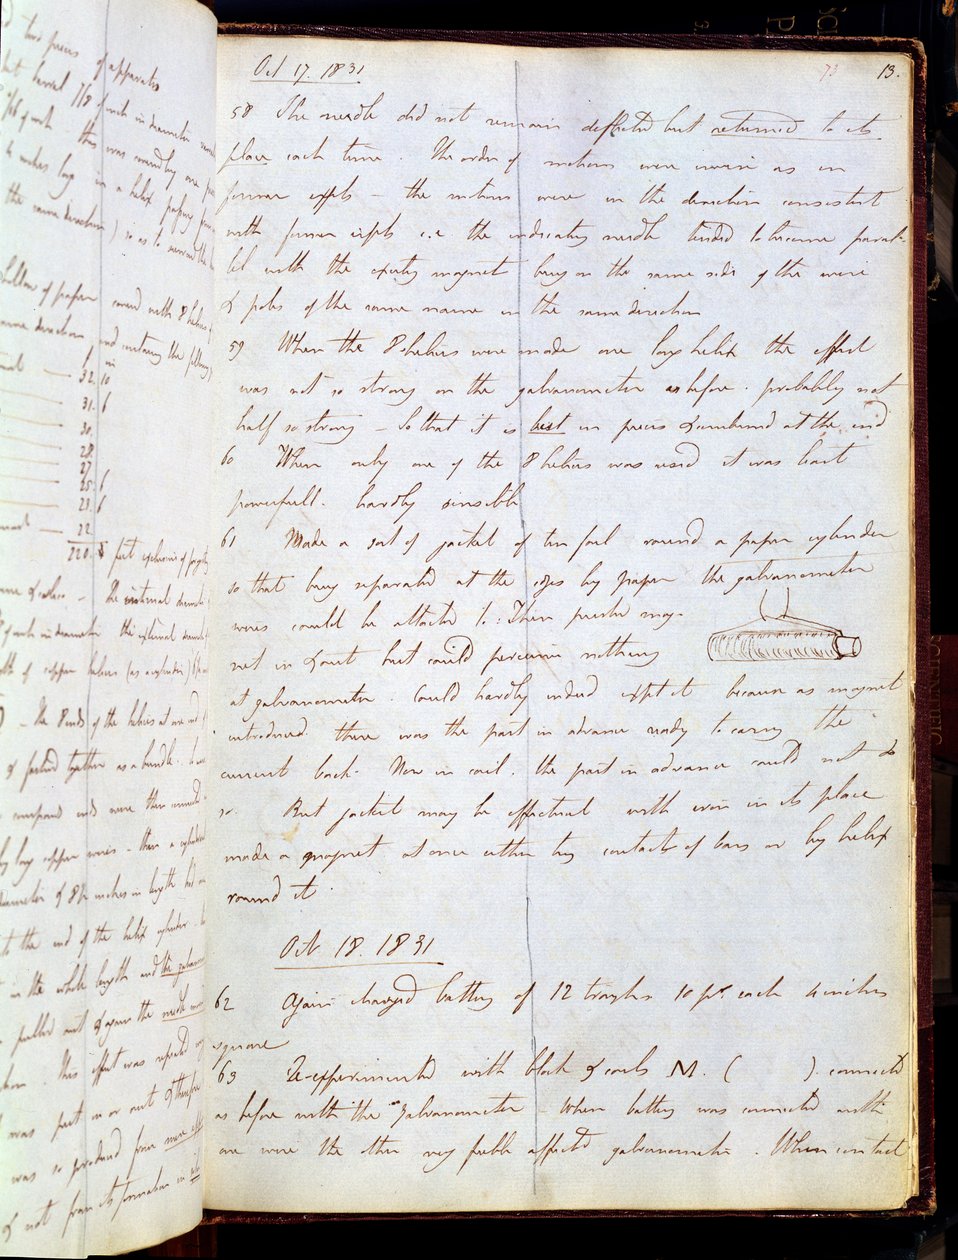 two pieces of apparatus
barrel 7/8 of inch in diameter
this was wound by one
inches long in a helix
the same direction ) so as to
of paper covered with 8 helices
same direction and containing the following
ft in
32. 10
31. 6
30.
28.
27
25. 6
23. 6
22
220. feet exclusive of
the internal diameter
of inch in diameter the external diameter
of copper helices (as a cylinder)
The 8 ends of the helices at one end
& fastened together as a bundle.
compound ends were then connected
by long copper wires - then a cylindrical
diameter & 8½ inches in length had
to the end of the helix cylinder
in the whole length and the galvano
pulled out & again the needle moved
This effect was repeated every
was put in or out & therefore
was so produced from mere
& not from its formation in
Oct 17. 1831
73 13.
58 The needle did not remain deflected but returned to its
place each time. The order of motions were inverse as in
former expts - the motions were in the direction consistent
with former expts i.e the indicating needle tended to become paral-
lel with the exciting magnet being on the same side of the wire
& poles of the same name in the same direction
59 When the 8 helices were made one long helix the effect
was not so strong on the galvanometer as before. probably not
half so strong - So that it is best in pieces & combined at the end
60 When only one of the 8 helices was used it was least
powerfull. hardly sensible
61 Made a sort of jacket of tin foil round a paper cylinder
so that being separated at the edges by paper the galvanometer
wires could be attached to. Then pushed mag-
net in & out but could perceive nothing
at galvanometer. Could hardly indeed expect it because as magnet
introduced there was the part in advance ready to carry the
current back. Now in coil. the part in advance could not do
so. But jacket may be effectual with iron in its place
made a magnet at once either by contacts of bars or by helix
round it
Oct. 18. 1831
62 Again charged battery of 12 troughs 10 pr. each 4 inches
square
63 Re-experimented with block & coils M. ( ). connected
as before with the galvanometer - When battery was connected with
one wire the other very feebly affected galvanometer. When contact